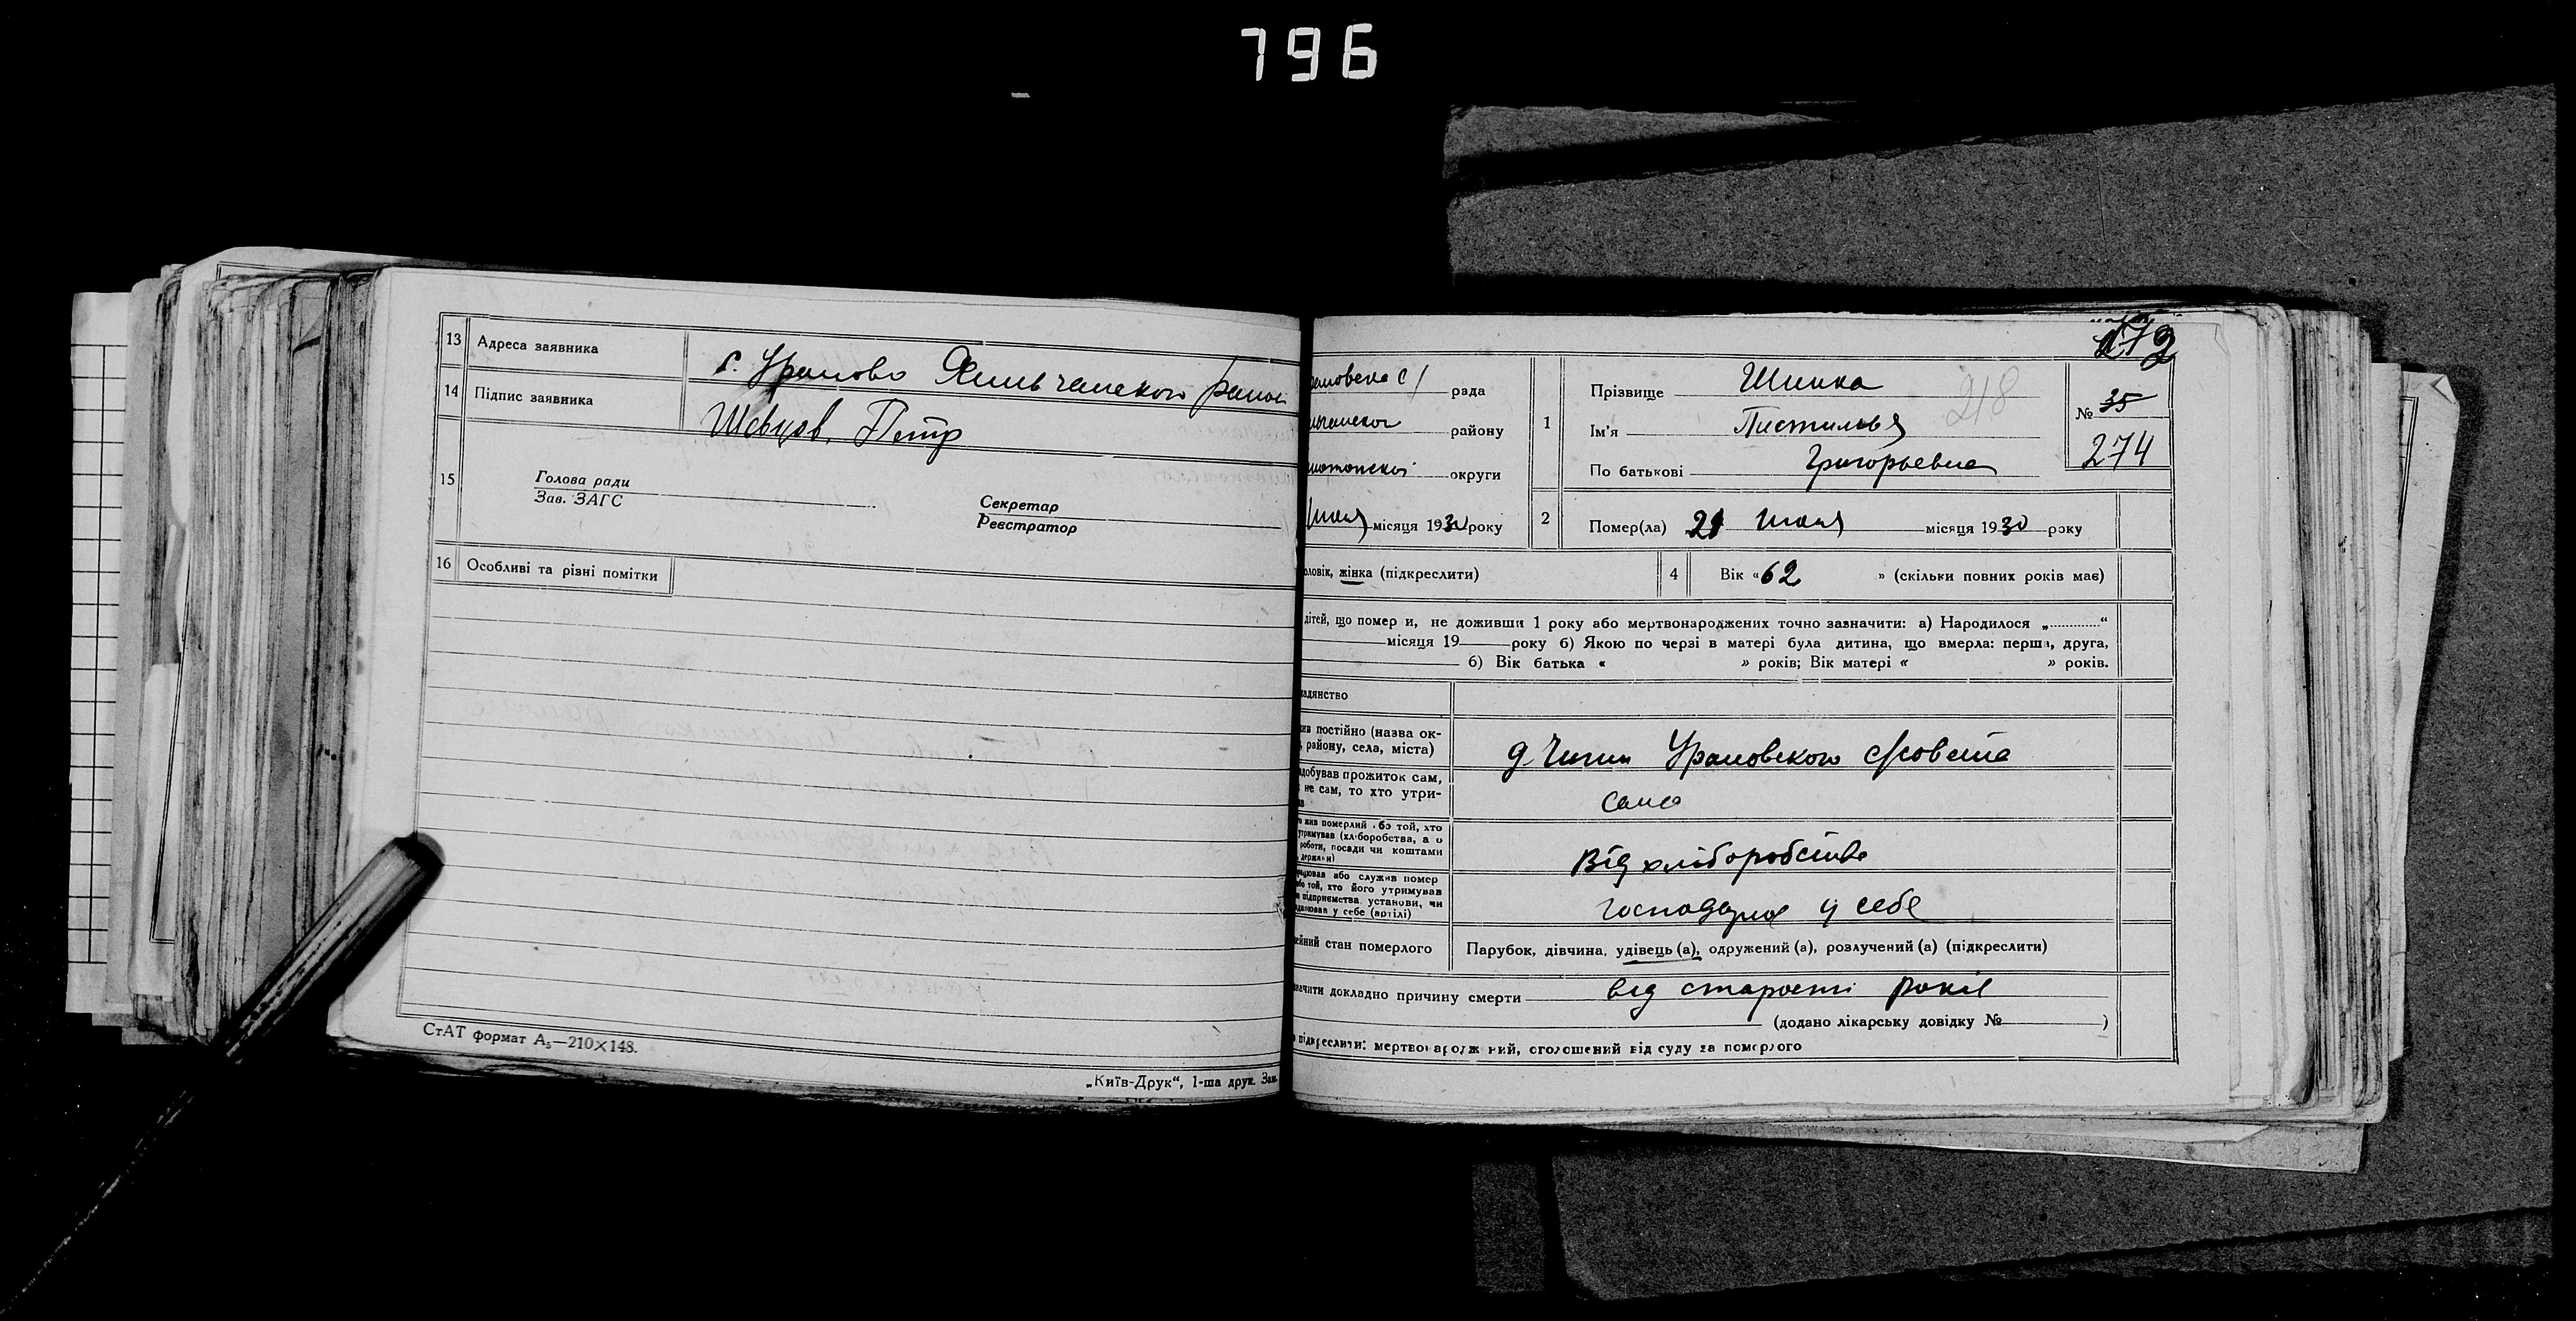 796
13 Адреса заявника с. Урамово Ямпичанського район
14 Підпис заявника Шевцов Петр
15 Голова ради
Зав. ЗАГС
Секретар
Реєстратор
16 Особливі та різні помітки
СтАТ формат А₅—210×148.
„Київ-Друк“, 1-ша друк. Зам.
рада
району
округи
місяця 1930 року
1 Прізвище Шинка
Ім'я
218
По батькові Григорьевна
№ 35
274
2 Помер(ла) 21 июня місяця 1930 року
оловік, жінка (підкреслити)
4 Вік «62» (скільки повних років має)
дітей, що померли, не доживши 1 року або мертвонароджених точно зазначити: а) Народилося „............“
місяця 19 року б) Якою по черзі в матері була дитина, що вмерла: перша, друга,
б) Вік батька « » років; Вік матері « » років.
адянство
ив постійно (назва ок-
, району, села, міста)
добував прожиток сам,
не сам, то хто утри-
сама
о жив померлий або той, хто
утримував (хліборобства, а о
роботи, посади чи коштами
держави)
Від хліборобства
рацював або служив помер
або той, хто його утримував
підприємства, установи, чи
працював у себе (артілі)
у себе
ейний стан померлого Парубок, дівчина, удівець (а), одружений (а), розлучений (а) (підкреслити)
значити докладно причину смерти від старості років
(додано лікарську довідку № )
підкреслити: мертвонароджений, оголошений від суду за померлого